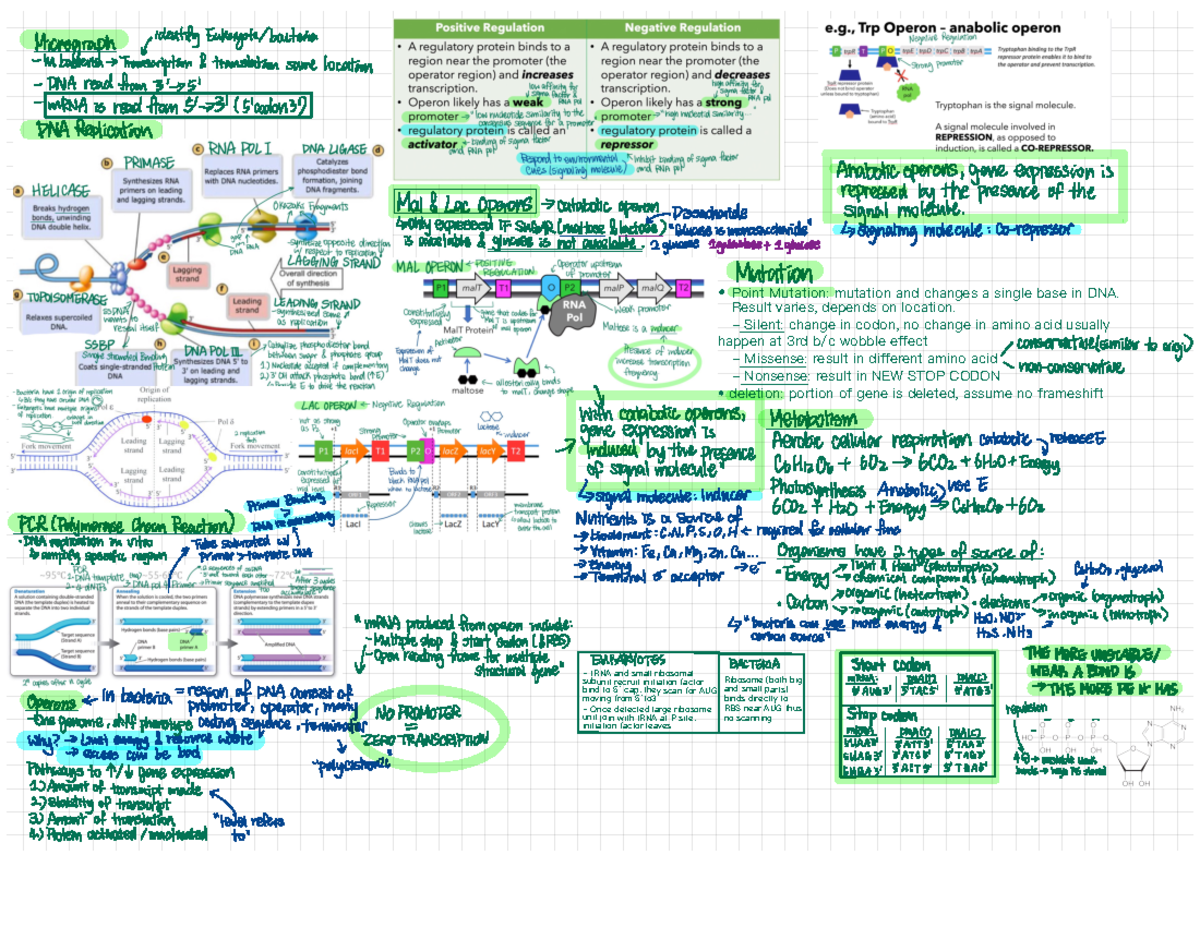 Micrograph
identify Eukaryote/bacteria
- In bacteria → Transcription & translation same location
- DNA read from 3'→5'
- mRNA is read from 5'→3' (5'codon3')
DNA Replication
a HELICASE
Breaks hydrogen bonds, unwinding DNA double helix.
b PRIMASE
Synthesizes RNA primers on leading and lagging strands.
c RNA POL I
Replaces RNA primers with DNA nucleotides.
DNA LIGASE d
Catalyzes phosphodiester bond formation, joining DNA fragments.
Okazaki Fragments
-synthesize opposite direction w/ respect to replication
LAGGING STRAND
e
Lagging strand
Overall direction of synthesis
f
Leading strand
LEADING STRAND
g TOPOISOMERASE
Relaxes supercoiled DNA.
SSBP
Single Stranded Binding Protein
Coats single-stranded DNA
h
DNA POL III
Synthesizes DNA 5' to 3' on leading and lagging strands.
i
• Catalyze phosphodiester bond between sugar & phosphate group
1) Nucleotide accepted if complementary
2) 3' OH attack phosphate bond (↑E)
- Bacteria have 1 origin of replication
Origin of replication
Pol ε
Pol δ
Fork movement
Fork movement
Leading strand
Lagging strand
Lagging strand
Leading strand
PCR (Polymerase Chain Reaction)
• DNA replication in vitro
↳ amplify specific region
Primer Binding
DNA reannealing
Tube saturated w/ Primer > template DNA
~95°C
~72°C
Denaturation
A solution containing double-stranded DNA (the template duplex) is heated to separate the DNA into two individual strands.
Annealing
When the solution is cooled, the two primers anneal to their complementary sequence on the strands of the template duplex.
Extension
DNA polymerase synthesizes new DNA strands (complementary to the template duplex) by extending primers in a 5' to 3' direction.
Target sequence (Strand A)
Target sequence (Strand B)
Hydrogen bonds (base pairs)
DNA primer A
DNA primer B
Hydrogen bonds (base pairs)
Amplified DNA
2ⁿ copies after n cycle
Operons ← In bacteria = region of DNA consist of promoter, operator, many coding sequence, terminator
- One genome, diff phenotype
Why? → Limit energy & resource waste
→ excess can be bad
"polycistronic"
Pathways to ↑/↓ gene expression
1) Amount of transcript made
2) Stability of transcript
3) Amount of translation
4) Protein activated / inactivated
"level refers to"
Positive Regulation
• A regulatory protein binds to a region near the promoter (the operator region) and increases transcription.
• Operon likely has a weak promoter
• regulatory protein is called an activator
Negative Regulation
• A regulatory protein binds to a region near the promoter (the operator region) and decreases transcription.
• Operon likely has a strong promoter
• regulatory protein is called a repressor
low affinity for sigma factor & RNA pol
high affinity for sigma factor & RNA pol
"low nucleotide similarity to the consensus sequence for a promoter"
"high nucleotide similarity..."
binding of sigma factor and RNA pol
Respond to environmental cues (signaling molecule)
Inhibit binding of sigma factor and RNA pol
Mal & Lac Operons → catabolic operon
↳ only expressed IF SUGAR (maltose & lactose) is available & glucose is not available.
Disaccharide
"Glucose is monosaccharide"
2 glucose
1 galactose + 1 glucose
MAL OPERON ← POSITIVE REGULATION
Operator upstream of promoter
P1
malT
T1
O
P2
malP
malQ
T2
RNA Pol
Constitutively expressed
MalT Protein
Activator
Weak promoter
Maltose is a inducer
Expression of MalT does not change
Presence of inducer increase transcription frequency
maltose
LAC OPERON ← Negative Regulation
not as strong as P2
Strong promoter
Operator overlaps promoter
lactose
inducer
P1
lacI
T1
P2
O
lacZ
lacY
T2
Repressor
LacI
LacZ
LacY
"mRNA produced from operon include:
- Multiple stop & start codon (& RBS)
- Open reading frame for multiple structural gene"
NO PROMOTER
=
ZERO TRANSCRIPTION
e.g., Trp Operon – anabolic operon
Negative Regulation
P
trpR
T
P
O
trpE
trpD
trpC
trpB
trpA
Strong promoter
Tryptophan binding to the TrpR repressor protein enables it to bind to the operator and prevent transcription.
TrpR repressor protein (Does not bind operator unless bound to tryptophan)
RNA pol
Tryptophan bound to TrpR
Tryptophan is the signal molecule.
A signal molecule involved in REPRESSION, as opposed to induction, is called a CO-REPRESSOR.
Anabolic operons, gene expression is repressed by the presence of the signal molecule.
↳ signaling molecule: Co-repressor
Mutation
• Point Mutation: mutation and changes a single base in DNA. Result varies, depends on location.
– Silent: change in codon, no change in amino acid usually happen at 3rd b/c wobble effect
– Missense: result in different amino acid
conservative (similar to origi)
non-conservative
– Nonsense: result in NEW STOP CODON
• deletion: portion of gene is deleted, assume no frameshift
With catabolic operons, gene expression is induced by the presence of signal molecule"
↳ signal molecule: Inducer
Metabolism
Aerobic cellular respiration catabolic → release E
C₆H₁₂O₆ + 6O₂ → 6CO₂ + 6H₂O + Energy
Photosynthesis Anabolic → use E
6CO₂ + H₂O + Energy → C₆H₁₂O₆ + 6O₂
Nutrients is a source of
→ Bioelement: C,N,P,S,O,H ← required for cellular fxns
→ Vitamin: Fe, Ca, Mg, Zn, Cu...
→ Energy → e⁻
→ Terminal e⁻ acceptor
Organisms have 2 types of source of:
• Energy → light & Heat (phototrophs)
→ chemical compounds (chemotroph)
• Carbon → organic (heterotroph)
→ inorganic (autotroph)
↳ "bacteria can use more energy & carbon source"
• electrons → organic (organotroph)
→ inorganic (lithotroph)
C₆H₁₂O₆, glycerol
H₂O, NO₂⁻
H₂S, NH₃
EUKARYOTES
- tRNA and small ribosomal subunit recruit initiation factor bind to 5' cap, they scan for AUG moving from 5' to 3'
- Once detected large ribosome unit join with tRNA at P site, initiation factor leaves
BACTERIA
Ribosome (both big and small parts) binds directly to RBS near AUG thus no scanning
Start codon
mRNA: DNA(T) DNA(C)
5'AUG3' 3'TAC5' 5'ATG3'
Stop codon
mRNA DNA(T) DNA(C)
5'UAA3' 3'ATT5' 5'TAA3'
5'UAG3' 3'ATC5' 5'TAG3'
5'UGA3' 3'ACT5' 5'TGA3'
THE MORE UNSTABLE/WEAK A BOND IS → THE MORE PE IT HAS
repulsion
4(-) → unstable weak bonds → high PE stored
NH₂
HO
OH
OH
OH
OH OH